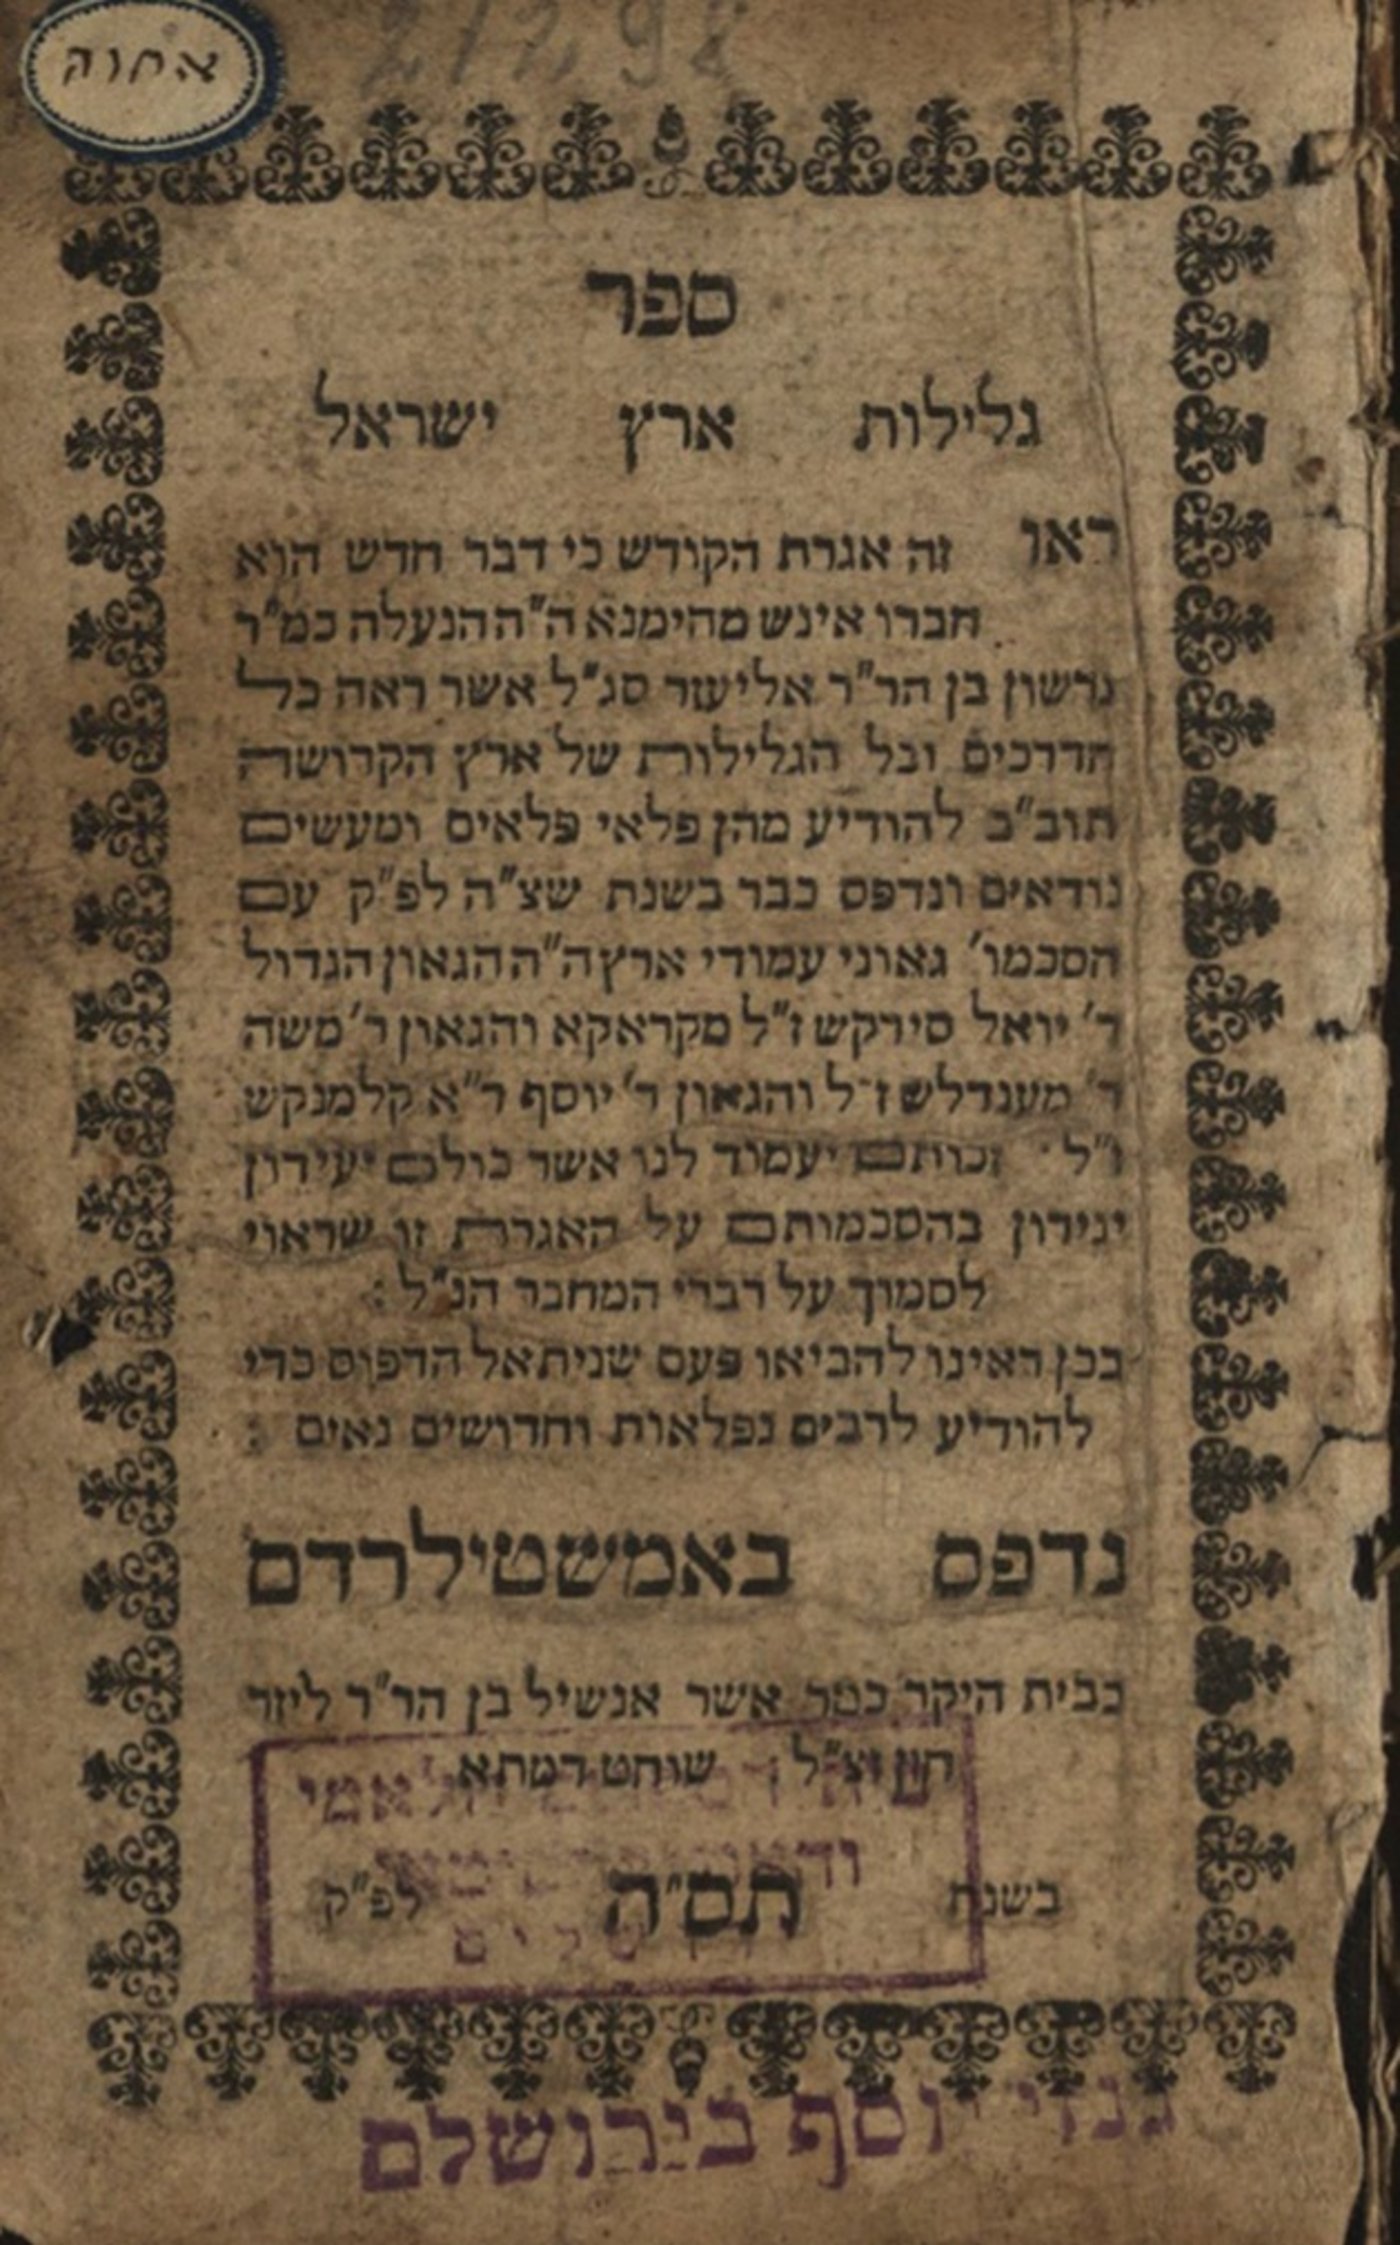 אחוה
ספר
גלילות ארץ ישראל
ראו זה אגרת הקודש כי דבר חדש הוא
חברו אינש מהימנא ה"ה הנעלה כמ"ר
גרשון בן הר"ר אליעזר סג"ל אשר ראה כל
הדרכים וכל הגלילות של ארץ הקדושה
תוב"ב להודיע מהן פלאי פלאים ומעשים
נודאים ונדפס כבר בשנת שצ"ה לפ"ק עם
הסכמו' גאוני עמודי ארץ ה"ה הגאון הגדול
ר' יואל סירקש ז"ל מקראקא והגאון ר' משה
ר' מענדלש ז"ל והגאון ר' יוסף ר"א קלמנקש
ז"ל זכותם יעמוד לנו אשר כולם יעידון
יגידון בהסכמותם על האגרת זו שראוי
לסמוך על דברי המחבר הנ"ל :
בכן ראינו להביאו פעם שנית אל הדפוס כדי
להודיע לרבים נפלאות וחדושים נאים :
נדפס באמשטילרדם
בבית היקר כמר אשר אנשיל בן הר"ר ליזר
חזן זצ"ל שוחט דמתא
בשנת תס"ה לפ"ק
גנזי יוסף בירושלם